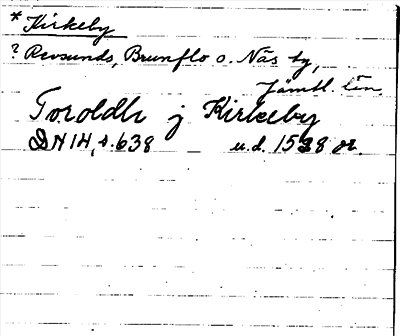 * Kirkeby
? Revsunds, Brunflo o. Näs tg,
Jämtl. län
Toroldh j Kirkeby
DN 14, s. 638 u.d. 1528 or.